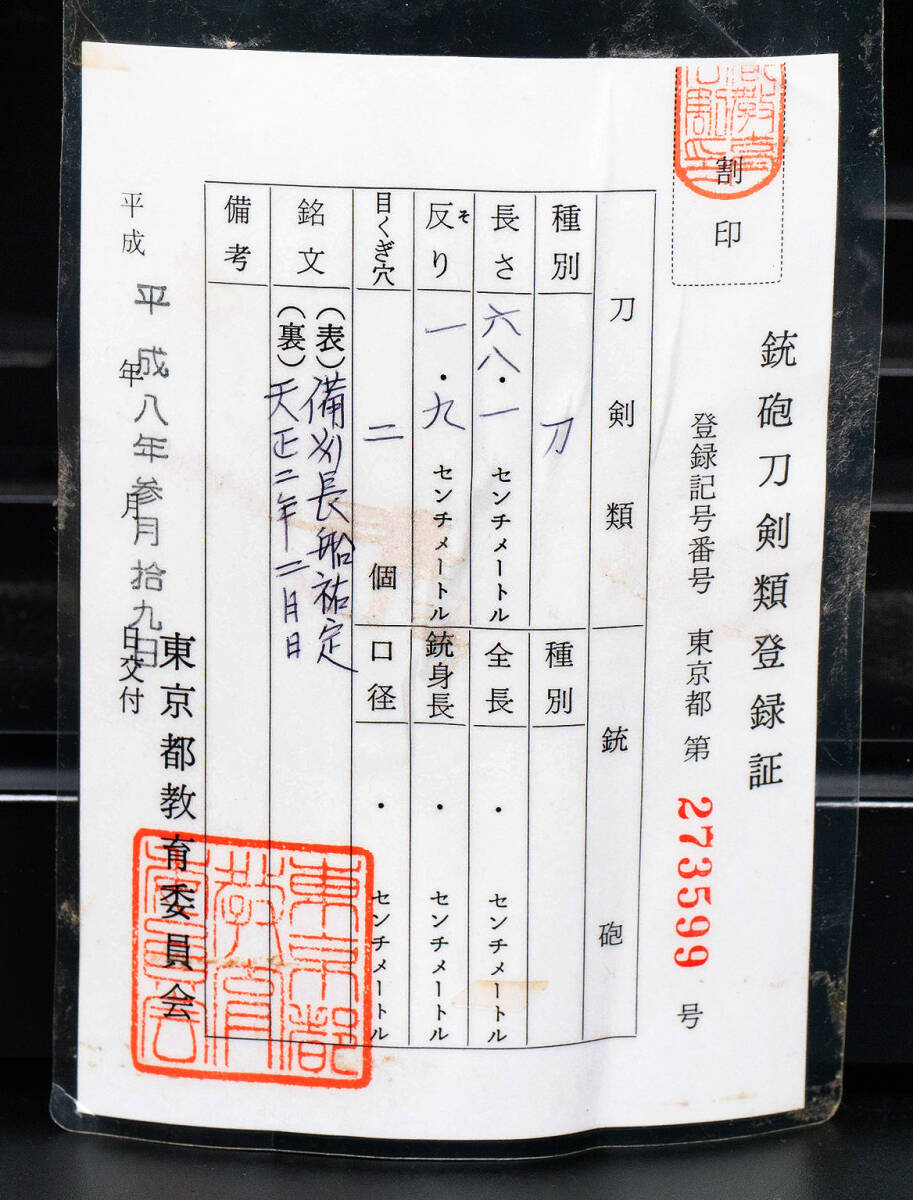 割印
銃砲刀剣類登録証
登録記号番号 東京都 第 273599 号
刀剣類
種別 刀
長さ 六八・一 センチメートル
反り 一・九 センチメートル
そ
目くぎ穴 二 個
銘文 (表)備州長船祐定
(裏)天正二年二月日
備考
銃砲
種別
全長 ・ センチメートル
銃身長 ・ センチメートル
口径 ・ センチメートル
平成 年 月 日交付
平成八年参月拾九日
東京都教育委員会
東京都
教育
委員会